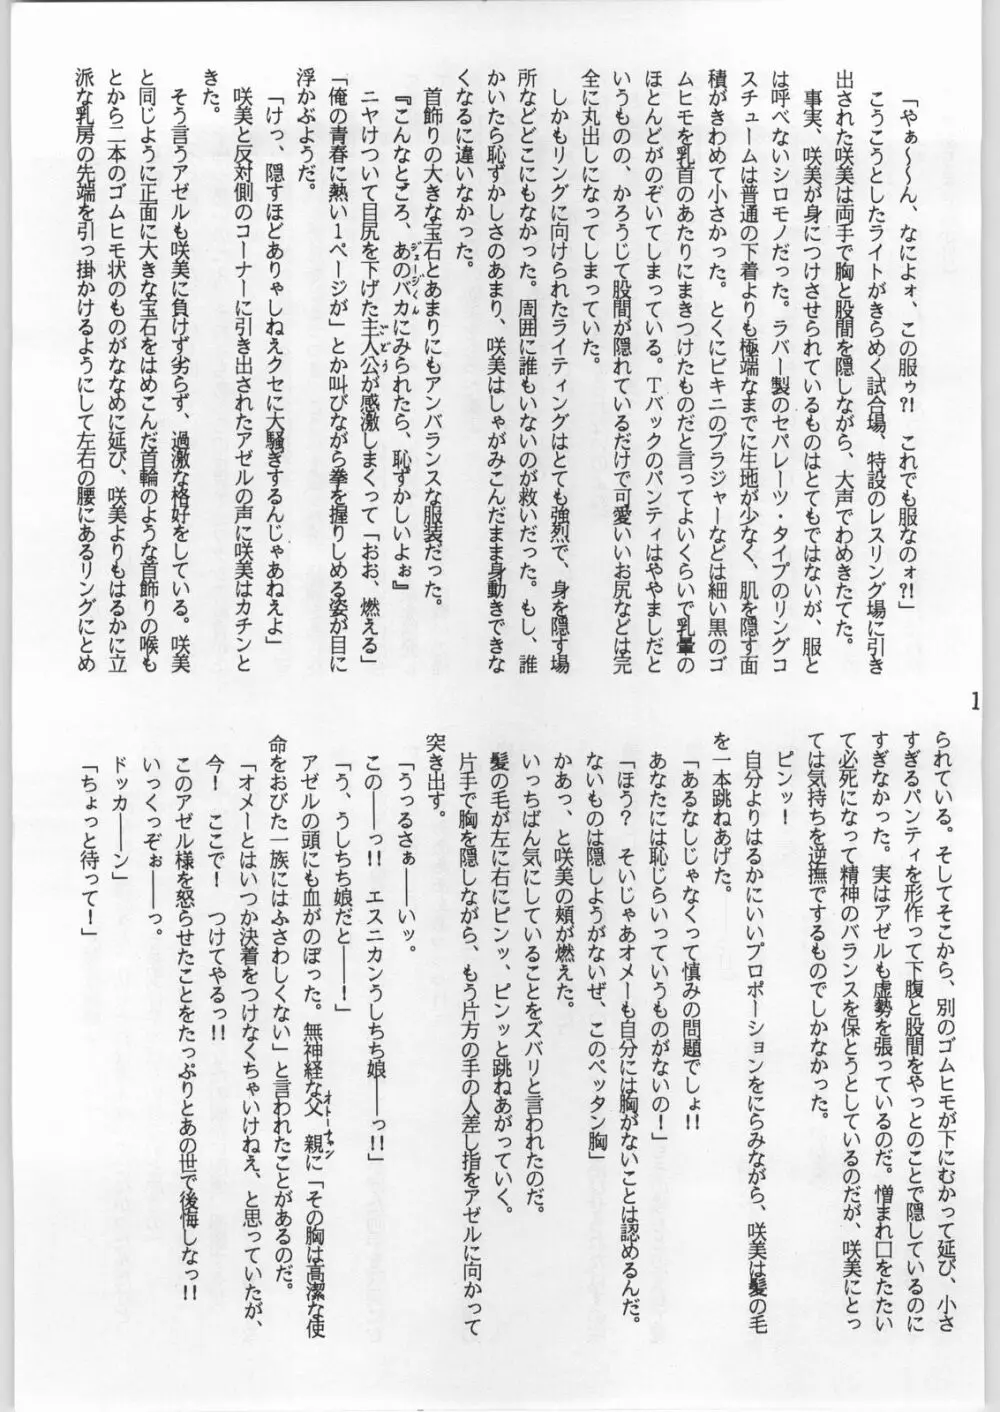 「やぁ～～ん、なによォ、この服ゥ?!　これでも服なのォ?!」
こうこうとしたライトがきらめく試合場、特設のレスリング場に引き
出された咲美は両手で胸と股間を隠しながら、大声でわめきたてた。
事実、咲美が身につけさせられているものはとてもではないが、服と
は呼べないシロモノだった。ラバー製のセパレーツ・タイプのリングコ
スチュームは普通の下着よりも極端なまでに生地が少なく、肌を隠す面
積がきわめて小さかった。とくにビキニのブラジャーなどは細い黒のゴ
ムヒモを乳首のあたりにまきつけたものだと言ってよいくらいで乳暈の
ほとんどがのぞいてしまっている。Tバックのパンティはややましだと
いうものの、かろうじて股間が隠れているだけで可愛いいお尻などは完
全に丸出しになってしまっていた。
しかもリングに向けられたライティングはとても強烈で、身を隠す場
所などどこにもなかった。周囲に誰もいないのが救いだった。もし、誰
かいたら恥ずかしさのあまり、咲美はしゃがみこんだまま身動きできな
くなるに違いなかった。
首飾りの大きな宝石とあまりにもアンバランスな服装だった。
『こんなところ、あのバカにみられたら、恥ずかしいよぉ』
ニヤけついて目尻を下げた主人公が感激しまくって「おお、燃える」
「俺の青春に熱い1ページが」とか叫びながら拳を握りしめる姿が目に
浮かぶようだ。
「けっ、隠すほどありゃしねえクセに大騒ぎするんじゃあねえよ」
咲美と反対側のコーナーに引き出されたアゼルの声に咲美はカチンと
きた。
そう言うアゼルも咲美に負けず劣らず、過激な格好をしている。咲美
と同じように正面に大きな宝石をはめこんだ首輪のような首飾りの喉も
とから二本のゴムヒモ状のものがななめに延び、咲美よりもはるかに立
派な乳房の先端を引っ掛かけるようにして左右の腰にあるリングにとめ
1
られている。そしてそこから、別のゴムヒモが下にむかって延び、小さ
すぎるパンティを形作って下腹と股間をやっとのことで隠しているのに
すぎなかった。実はアゼルも虚勢を張っているのだ。憎まれ口をたたい
て必死になって精神のバランスを保とうとしているのだが、咲美にとっ
ては気持ちを逆撫でするものでしかなかった。
ピンッ！
自分よりはるかにいいプロポーションをにらみながら、咲美は髪の毛
を一本跳ねあげた。
「あるなしじゃなくって慎みの問題でしょ!!
あなたには恥じらいっていうものがないの！」
「ほう？　そいじゃあオメーも自分には胸がないことは認めるんだ。
ないものは隠しようがないぜ、このペッタン胸」
かあっ、と咲美の頬が燃えた。
いっちばん気にしていることをズバリと言われたのだ。
髪の毛が左に右にピンッ、ピンッと跳ねあがっていく。
片手で胸を隠しながら、もう片方の手の人差し指をアゼルに向かって
突き出す。
「うっるさぁ――いッ。
この――っ!!　エスニカンうしちち娘――っ!!」
「う、うしちち娘だと――！」
アゼルの頭にも血がのぼった。無神経な父親に「その胸は高潔な使
命をおびた一族にはふさわしくない」と言われたことがあるのだ。
「オメーとはいつか決着をつけなくちゃいけねえ、と思っていたが、
今！　ここで！　つけてやるっ!!
このアゼル様を怒らせたことをたっぷりとあの世で後悔しなっ!!
いっくっぞぉ――っ。
ドッカ――ン」
「ちょっと待って！」